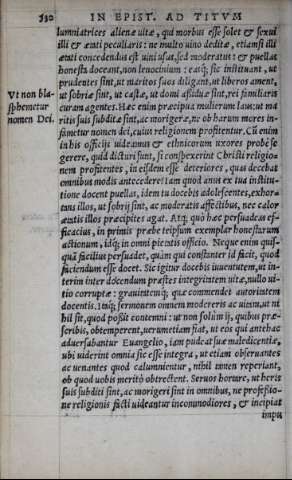 530 IN EPIST. AD TITVM
lumniatrices alienæ uitæ, qui morbus esse solet & sexui
illi & ætati peculiaris: ne multo uino deditæ, etiamsi illi
ætati concedendus est uini usus, sed moderatus: & puellas
honesta doceant, non lenocinium: easq́; sic instituant, ut
prudentes sint, ut maritos suos diligant, ut liberos ament,
Vt non bla=
sphemetur
nomen Dei.
ut sobriæ sint, ut castæ, ut domi assiduæ sint, rei familiaris
curam agentes. Hæc enim præcipua mulierum laus: ut ma
ritis suis subditæ sint, ac morigeræ, ne ob harum mores in=
fametur nomen dei, cuius religionem profitentur. Cū enim
in his officijs uideamus & ethnicorum uxores probè se
gerere, quid dicturi sunt, si conspexerint Christi religio=
nem profitentes, in eisdem esse deteriores, quas decebat
omnibus modis antecedere? Iam quod anus ex tua institu=
tione docent puellas, idem tu docebis adolescentes, exhor=
tans illos, ut sobrij sint, ac moderatis affectibus, nec calor
ætatis illos præcipites agat. Atq; quò hæc persuadeas ef=
ficacius, in primis præbe teipsum exemplar honestarum
actionum, idq́; in omni pietatis officio. Neque enim quis=
quā facilius persuadet, quàm qui constanter id facit, quod
faciendum esse docet. Sic igitur docebis iuuentutem, ut in=
terim inter docendum præstes integritatem uitæ, nullo ui=
tio corruptæ: grauitatemq́;, quæ commendet autoritatem
docentis. Itaq́; sermonem omnem modereris ac uitam, ut ni
hil sit, quod possit contemni: ut non solùm ij, quibus præ=
scribis, obtemperent, uerumetiam fiat, ut eos qui antehac
aduersabantur Euangelio, iam pudeat suæ maledicentiæ,
ubi uiderint omnia sic esse integra, ut etiam obseruantes
ac uenantes quod calumnientur, nihil tamen reperiant,
ob quod uobis meritò obtrectent. Seruos hortare, ut heris
suis subditi sint, ac morigeri sint in omnibus, ne professio=
ne religionis facti uideantur incommodiores, & incipiat
impu